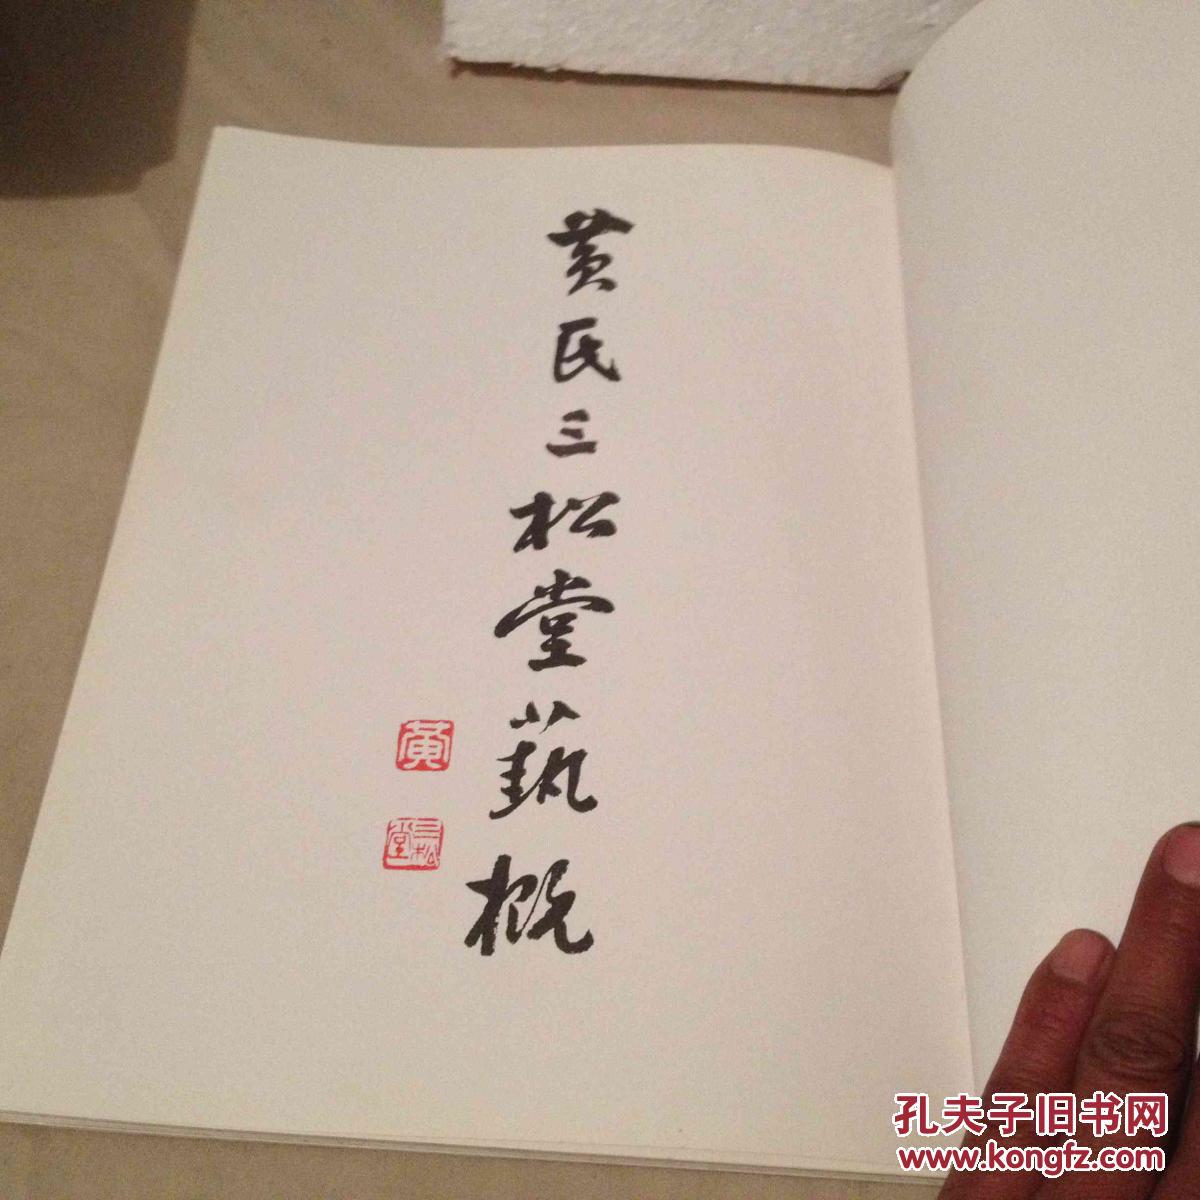 黄氏三松堂藝概
黄
三松堂
孔夫子旧书网
www.kongfz.com